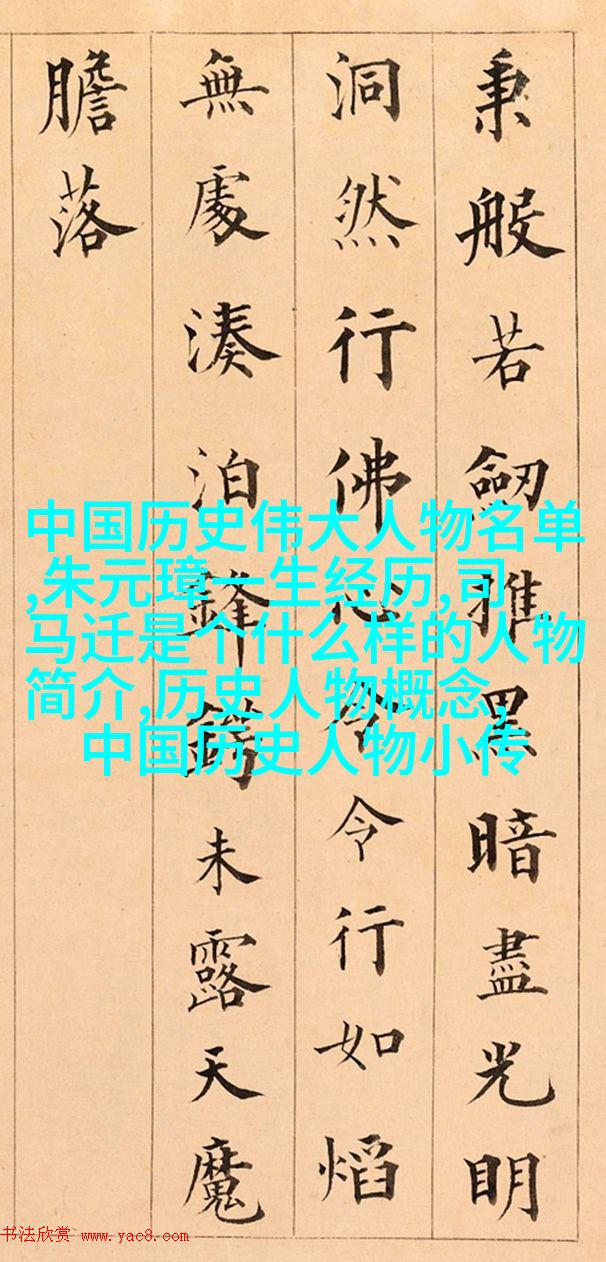 秉般若劒推黑暗盡光明
洞然行佛心令令行如熖
無處湊泊鋒鋩未露天魔
膽落
中国历史伟大人物名单
,朱元璋一生经历,司
马迁是个什么样的人物
简介,历史人物概念,
中国历史人物小传
书法欣赏 www.yac8.com